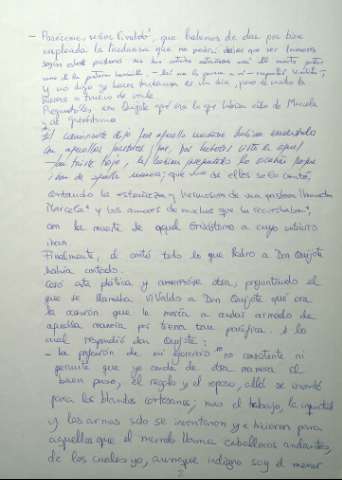 - Paréceme, señor Vivaldo, que habemos de dar por bien
empleada la tardanza que
según estos pastores nos han
y no digo yo hacer tardanza de un día, pero de
a trueco de verle
Preguntóles Don Quijote qué era lo que habían oído de Marcela
y de Grisóstomo
El caminante dijo que aquella mañana habían encontrado
con aquellos pastores y que, por haberlos visto en aquel
tan triste traje, les habían preguntado la ocasión porque
iban de aquella manera; que uno de ellos se lo contó,
contando la extrañeza y hermosura de una pastora llamada
Marcela y los amores de muchos que la recuestaban,
con la muerte de aquel Grisóstomo a cuyo entierro
iban
Finalmente, él contó todo lo que Pedro a Don Quijote
había contado.
Cesó esta plática y comenzóse otra, preguntando el
que se llamaba Vivaldo a Don Quijote qué era
la ocasión que le movía a andar armado de
aquella manera por tierra tan pacífica. A lo
cual respondió don Quijote:
- La profesión de mi ejercicio no consiente ni
permite que yo ande de otra manera el
buen paso, el regalo y el reposo, allá se inventó
para los blandos cortesanos; mas el trabajo, la inquietud
y las armas solo se inventaron y se hicieron para
aquellos que el mundo llama caballeros andantes,
de los cuales yo, aunque indigno soy el menor